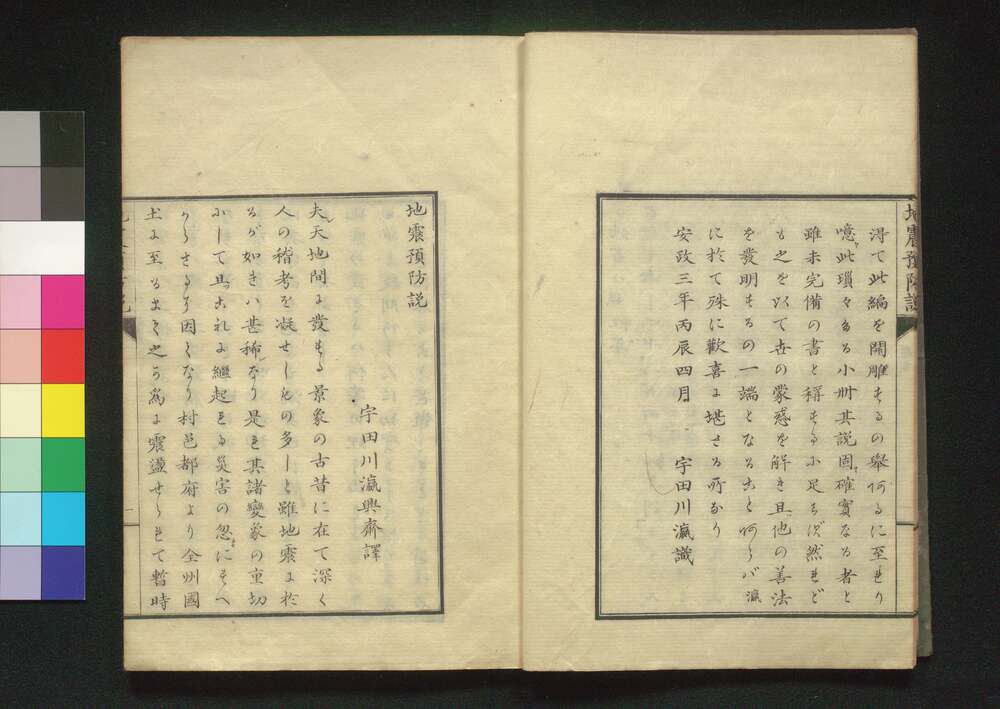 地震預防説
淂て此編を開雕するの舉あるに至れり
噫此瑣々たる小册其説固確實なる者と
雖未完備の書と稱するに足らず然れど
も之を以て世の蒙惑を解き且他の善法
を發明するの一端となることあらバ瀛
に於て殊に歡喜に堪さる所なり
安政三年丙辰四月 宇田川瀛識
地震預防説
宇田川瀛興齋譯
夫天地間に發する景象の古昔に在て深く
人の稽考を凝せしもの多しと雖地震に於
るが如きハ甚稀なり是れ其諸變象の重劫
にして且これに繼起する災害の忽にすへ
からさるに因てなり村邑都府より全州國
土に至るまて之か爲に震盪せられて暫時